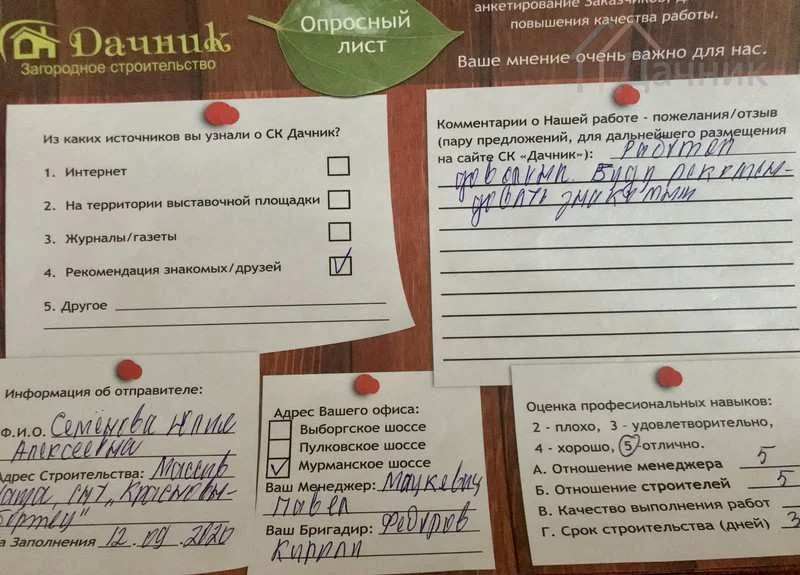 Дачник
Загородное строительство
Опросный
лист
анкетирование Заказчиков, д
повышения качества работы.
Ваше мнение очень важно для нас.
Дачник
Из каких источников вы узнали о СК Дачник?
1. Интернет
2. На территории выставочной площадки
3. Журналы/газеты
4. Рекомендация знакомых/друзей
5. Другое
Комментарии о Нашей работе - пожелания/отзыв
(пару предложений, для дальнейшего размещения
на сайте СК «Дачник»): Работой
довольны. Буду рекомен-
довать знакомым
Информация об отправителе:
Ф.И.О. Семёнова Юлия
Алексеевна
Адрес Строительства: Массив
СНТ „Красновы-
боржец"
а Заполнения 12.09.2020
Адрес Вашего офиса:
Выборгское шоссе
Пулковское шоссе
Мурманское шоссе
Ваш Менеджер: Мацкевич
Павел
Ваш Бригадир: Федоров
Кирилл
Оценка професиональных навыков:
2 - плохо, 3 - удовлетворительно,
4 - хорошо, 5 -отлично.
А. Отношение менеджера 5
Б. Отношение строителей 5
В. Качество выполнения работ
Г. Срок строительства (дней) 3